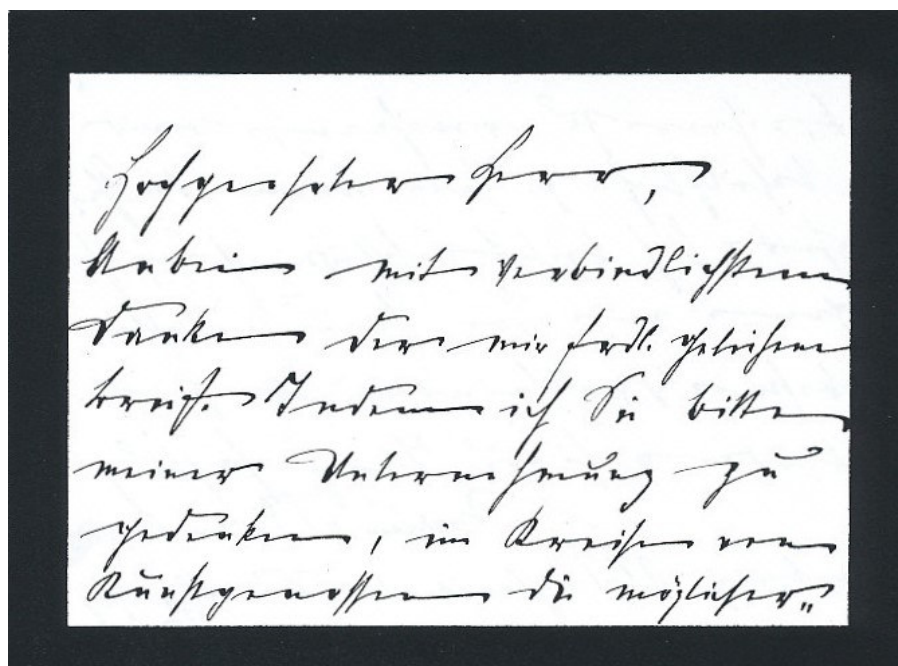 Hochgeehrter Herr,
Anbei mit verbindlichstem
Danke der mir frdl. geliehene
Indem ich Sie bitte
meiner Unternehmung zu
gedenken, im Kreise von
Kunstgenossen die möglicher=